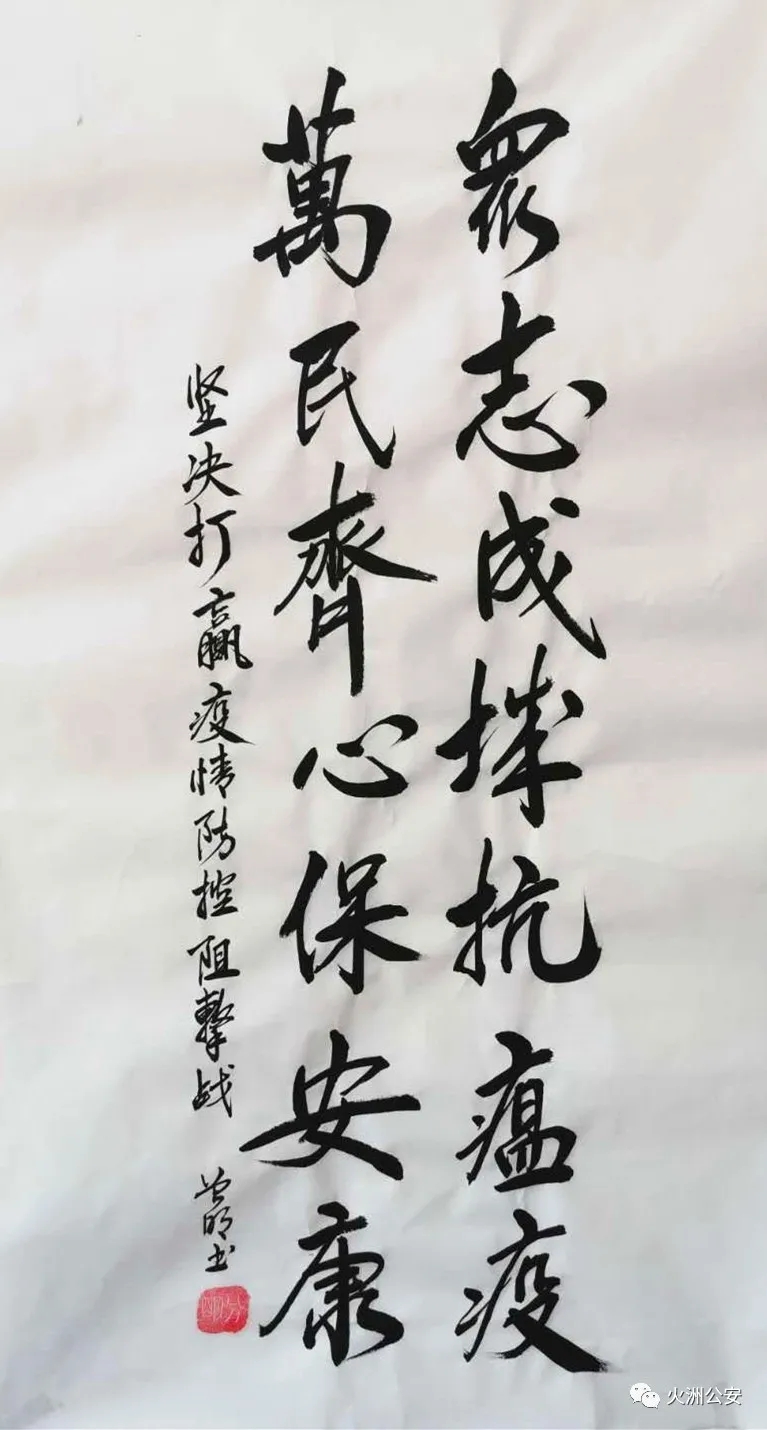 眾志成城抗瘟疫
萬民齊心保安康
坚决打赢疫情防控阻擊战
曾明书
火洲公安